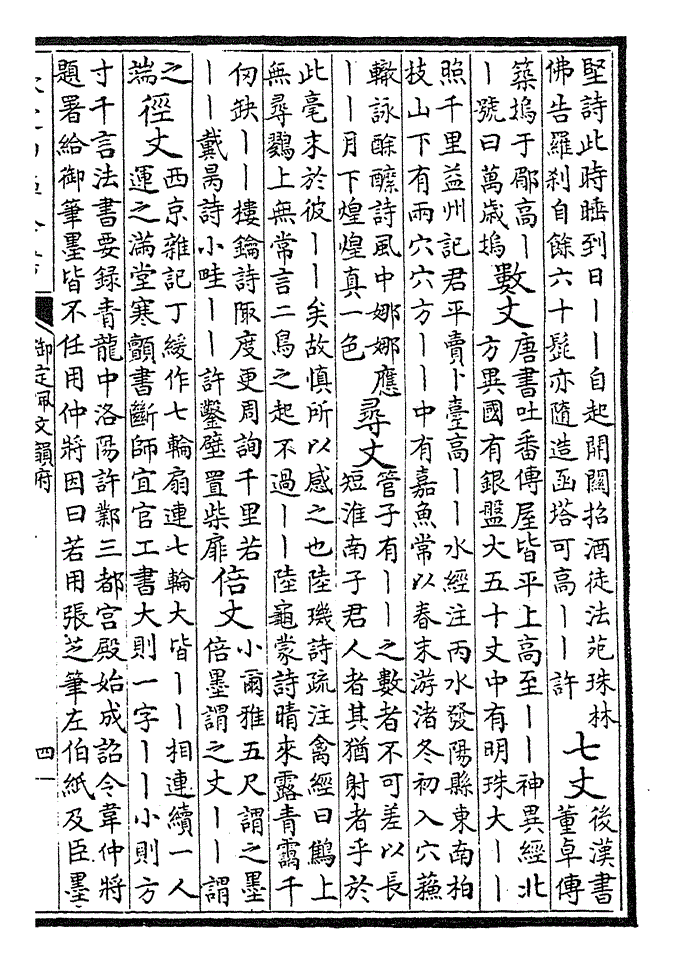 堅詩此時睡到日丨丨自起開關招酒徒法苑珠林
佛告羅刹自餘六十髭亦隨造函塔可高丨丨許
七丈
後漢書
董卓傳
築塢于郿高丨
丨號曰萬歲塢
數丈
唐書吐番傳屋皆平上高至丨丨神異經北
方異國有銀盤大五十丈中有明珠大丨丨
照千里益州記君平賣卜臺高丨丨水經注丙水發陽縣東南柏
枝山下有兩穴穴方丨丨中有嘉魚常以春末游渚冬初入穴蘓
轍詠酴醾詩風中娜娜應
丨丨月下煌煌真一色
尋丈
管子有丨丨之數者不可差以長
短淮南子君人者其猶射者乎於
此毫末於彼丨丨矣故慎所以感之也陸璣詩疏注禽經曰鷦上
無尋鷚上無常言二鳥之起不過丨丨陸龜蒙詩晴來露青靄千
仞缺丨丨樓鑰詩陬度更周詢千里若
丨丨戴昺詩小畦丨丨許鑿壁置柴扉
倍丈
小爾雅五尺謂之墨
倍墨謂之丈丨丨謂
之
端
徑丈
西京雜記丁緩作七輪扇連七輪大皆丨丨相連續一人
運之滿堂寒顫書斷師宜官工書大則一字丨丨小則方
寸千言法書要録青龍中洛陽許鄴三都宫殿始成詔令韋仲將
題署給御筆墨皆不任用仲將因曰若用張芝筆左伯紙及臣墨
御定佩文韻府
四一